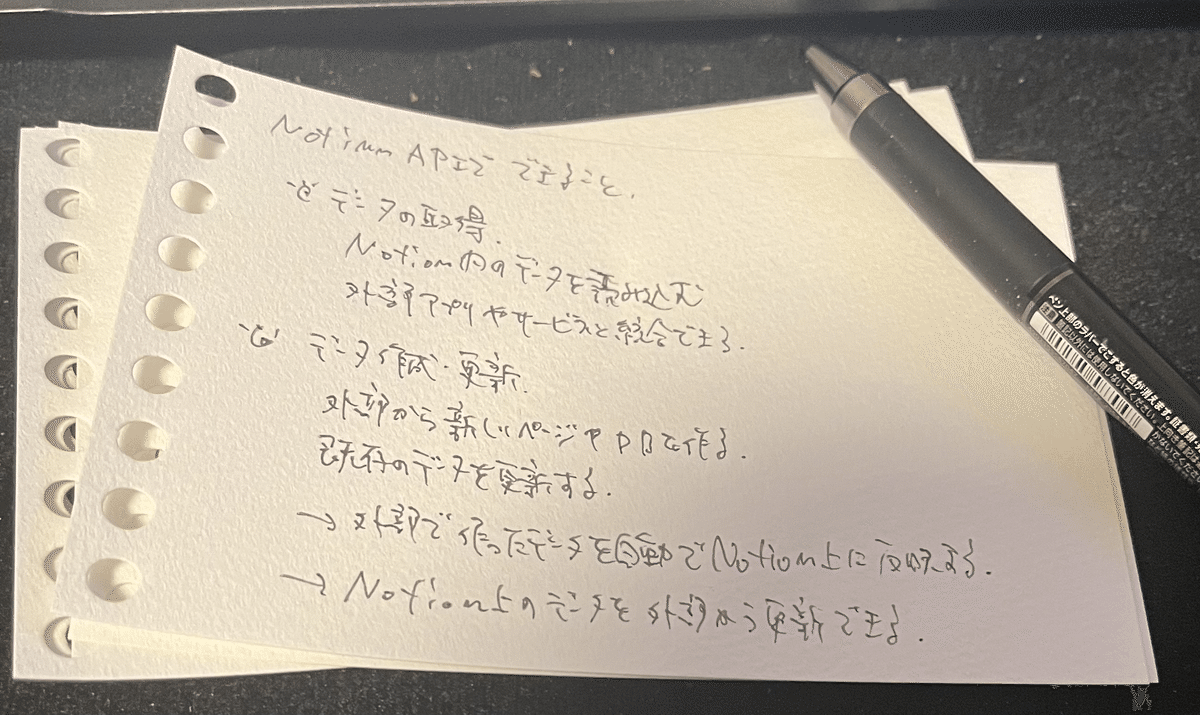 Notion APIでできること.
データの取得.
Notion内のデータを読み込む
外部アプリやサービスと統合できる.
データ作成・更新.
外部から新しいページやDBを作る.
既存のデータを更新する.
→ 外部で作ったデータを自動でNotion上に反映する.
→ Notion上のデータを外部から更新できる.
ペン上部のラバーでこすると色が消えます。証書類・
注意 筆記以外には使用しないでください。上向き筆記
がないでくださ